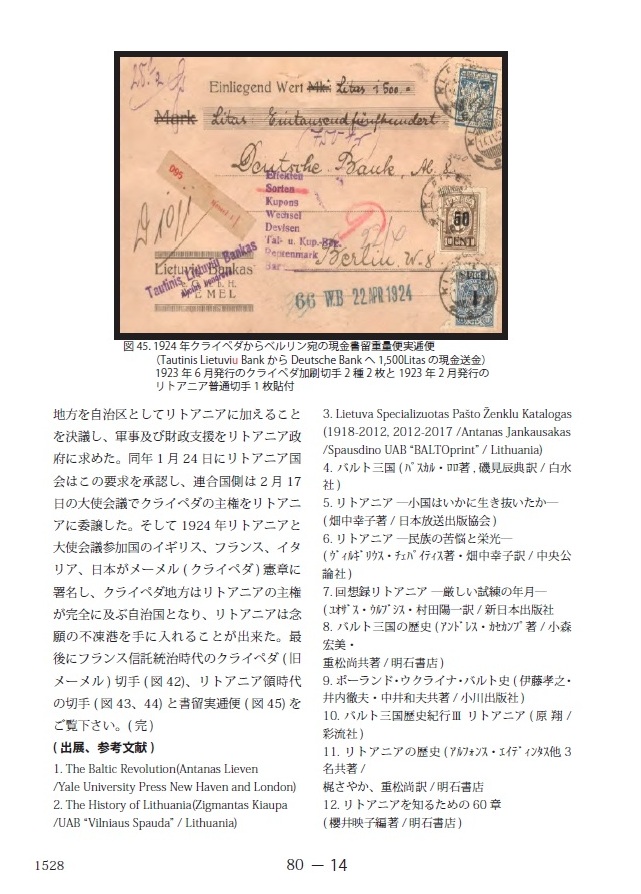 Einliegend Wert Mk. Litas 1500.-
Mark Litas Eintausendfünfhundert
Deutsche Bank, A. G.
095
Effekten
Sorten
Kupons
Wechsel
Devisen
Tal- u. Kup.-Bog.
Sortenmark
Bar
Berlin W. 8
Tautinis Lietuvių Bankas
Lietuvių Bankas
MEMEL
66 W.B 22 APR 1924
50
CENT
図 45. 1924 年クライペダからベルリン宛の現金書留重量便実逓便
(Tautinis Lietuviu Bank から Deutsche Bank へ 1,500Litas の現金送金)
1923 年 6 月発行のクライペダ加刷切手 2 種 2 枚と 1923 年 2 月発行の
リトアニア普通切手 1 枚貼付
地方を自治区としてリトアニアに加えること
を決議し、軍事及び財政支援をリトアニア政
府に求めた。同年 1 月 24 日にリトアニア国
会はこの要求を承認し、連合国側は 2 月 17
日の大使会議でクライペダの主権をリトアニ
アに委譲した。そして 1924 年リトアニアと
大使会議参加国のイギリス、フランス、イタ
リア、日本がメーメル ( クライペダ ) 憲章に
署名し、クライペダ地方はリトアニアの主権
が完全に及ぶ自治国となり、リトアニアは念
願の不凍港を手に入れることが出来た。最
後にフランス信託統治時代のクライペダ ( 旧
メーメル ) 切手 ( 図 42)、リトアニア領時代
の切手 ( 図 43、44) と書留実逓便 ( 図 45) を
ご覧下さい。( 完 )
( 出展、参考文献 )
1. The Baltic Revolution(Antanas Lieven
/Yale University Press New Haven and London)
2. The History of Lithuania(Zigmantas Kiaupa
/UAB "Vilniaus Spauda" / Lithuania)
3. Lietuva Specializuotas Pašto Ženklu Katalogas
(1918-2012, 2012-2017 /Antanas Jankausakas
/Spausdino UAB "BALTOprint" / Lithuania)
4. バルト三国 ( ﾊﾟｽｶﾙ・ﾛﾛ著 , 磯見辰典訳 / 白水
社 )
5. リトアニア ―小国はいかに生き抜いたか―
( 畑中幸子著 / 日本放送出版協会 )
6. リトアニア ―民族の苦悩と栄光―
( ｳﾞｨﾙｷﾞﾘｳｽ・ﾁｪﾊﾟｲﾃｨｽ著・畑中幸子訳 / 中央公
論社 )
7. 回想録リトアニア ―厳しい試練の年月―
( ﾕｵｻﾞｽ・ｳﾙﾌﾞｼｽ・村田陽一訳 / 新日本出版社
8. バルト三国の歴史 ( ｱﾝﾄﾞﾚｽ・ｶｾｶﾝﾌﾟ著 / 小森
宏美・
重松尚共著 / 明石書店 )
9. ポーランド・ウクライナ・バルト史 ( 伊藤孝之・
井内徹夫・中井和夫共著 / 小川出版社 )
10. バルト三国歴史紀行Ⅲ リトアニア ( 原 翔 /
彩流社 )
11. リトアニアの歴史 ( ｱﾙﾌｫﾝｽ・ｴｲﾃﾞｨﾝﾀｽ他 3
名共著 /
梶さやか、重松尚訳 / 明石書店
12. リトアニアを知るための 60 章
( 櫻井映子編著 / 明石書店 )
1528
80 ― 14